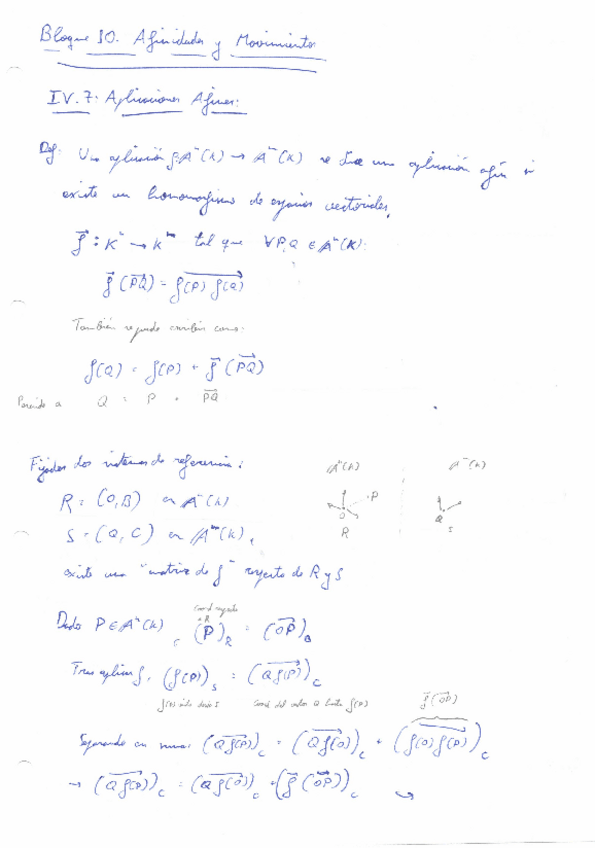 Bloque 10. Afinidades y Movimientos
IV.7. Aplicaciones Afines:
Def: Una aplicación f: Aⁿ(K) → Aᵐ(K) se dice una aplicación afín si
existe un homomorfismo de espacios vectoriales,
f⃗ : Kⁿ → Kᵐ tal que ∀P,Q ∈ Aⁿ(K):
f⃗ (PQ⃗) = f(P) f(Q)
También se puede escribir como:
f(Q) = f(P) + f⃗ (PQ⃗)
Parecido a Q = P + PQ⃗
Fijados dos sistemas de referencia:
Aⁿ(K) Aᵐ(K)
R = (O,B) en Aⁿ(K)
P
O
R
Q
S
S = (Q, C) en Aᵐ(K),
existe una "matriz de f" respecto de R y S
Coord respecto
a R
Dado P ∈ Aⁿ(K) (P)_R = (OP⃗)_B
Tras aplicar f, (f(P))_S = (Q f(P))_C
f(P) desde S Coord del vector Q hasta f(P)
f⃗(OP⃗)
(Q f(P))_C = (Q f(O))_C + (f(O) f(P))_C
→ (Q f(P))_C = (Q f(O))_C + (f⃗ (OP⃗))_C